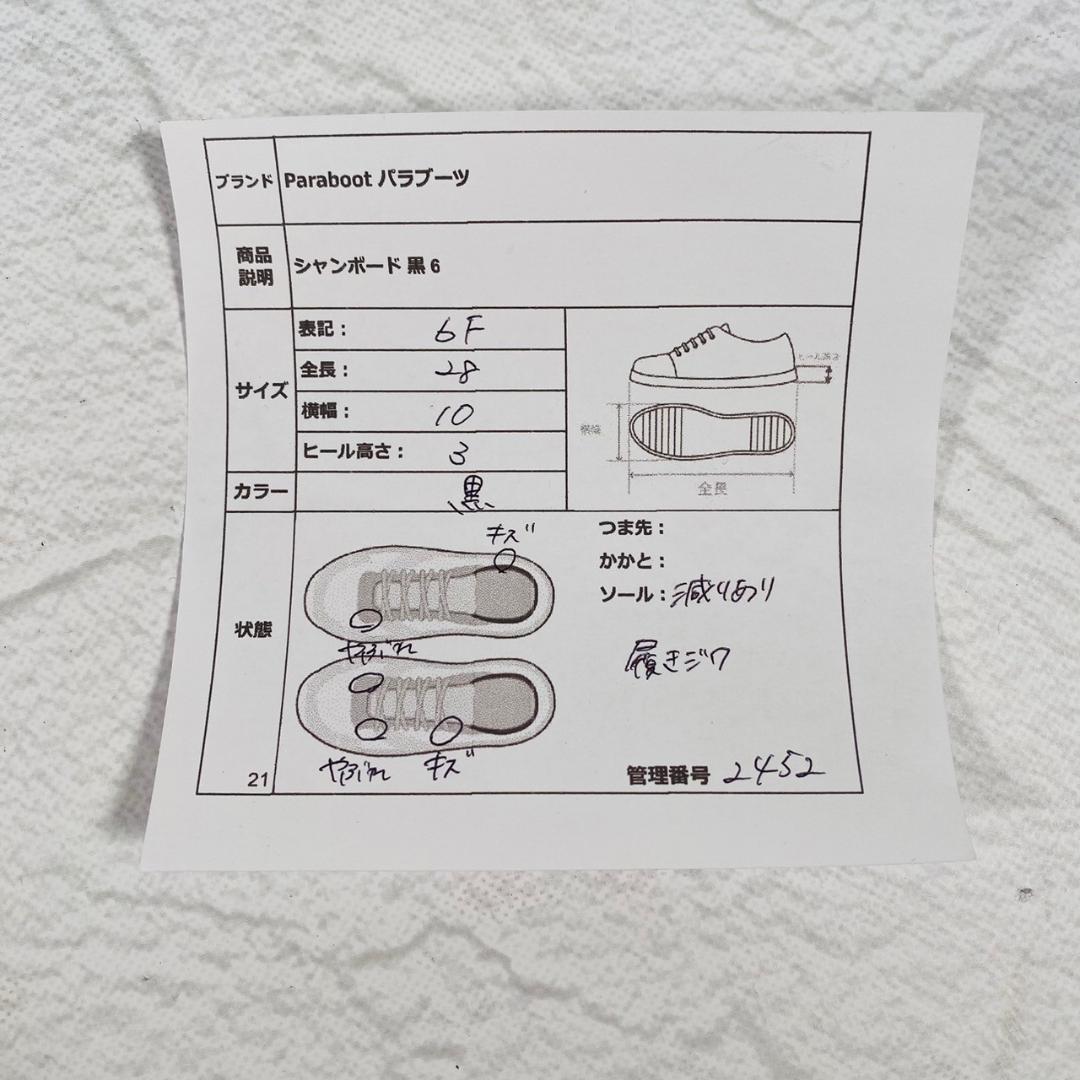 ブランド Paraboot パラブーツ
商品説明 シャンボード 黒 6
サイズ
表記： 6F
全長： 28
横幅： 10
ヒール高さ： 3
ヒール高さ
横幅
全長
カラー 黒
状態
キズ
やぶれ
やぶれ キズ
つま先：
かかと：
ソール：減りあり
履きジワ
21
管理番号 2452